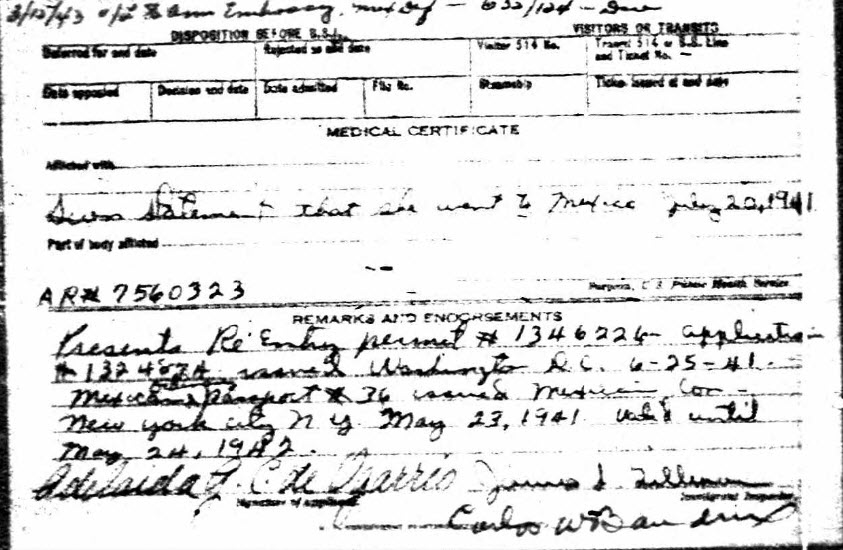 3/12/43 Am Embassy, Mex DF - 632/124 -
DISPOSITION BEFORE B.S.I. VISITORS OR TRANSITS
Deferred for and date Rejected as and date Visitor 514 No. Transit 514 or S.S. Line
and Ticket No. —
Date appealed Decision and date Date admitted File No. Steamship Ticket issued at and date
MEDICAL CERTIFICATE
Afflicted with
Sworn Statement that she went to Mexico July 20, 1941
Part of body afflicted
AR# 7560323 Surgeon, U. S. Public Health Service
REMARKS AND ENDORSEMENTS
Presents Re Entry permit # 1346226 - application
# issued Washington D.C. 6-25-41.
Mexican passport # 36 issued Mexican Con-
New york city N Y May 23, 1941 valid until
May 24, 1942.
Adelaida C. de James
Signature of applicant Immigrant Inspector
Carlos